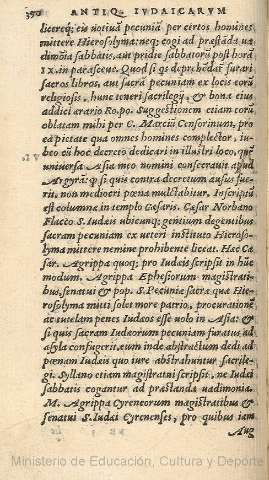 350 ANTIQ. IVDAICARVM
liceręq; eis uotiuā pecuniā per certos homines
mittere Hierosolyma: neq; cogi ad præstāda ua
dimōia sabbatis, aut pridie sabbatorū post horā
IX. in parasceue. Quod si qs deprehēdat̃ furari
sacros libros, aut sacrā pecuniam ex locis eorū
religiosis, hunc teneri sacrilegij, & bona eius
addici ærario Ro. po. Suggestionem etiam eorū
oblatam mihi per C. Marciū Censorinum, pro
ea pietate qua omnes homines complector, iu-
beo cū hoc decreto dedicari in illustri loco, quē
uniuersa Asia meo nomini consecrauit apud
Argyrā: q̃ si quis contra decretum ausus fue-
rit, non mediocri pœna mulctabitur. Inscriptū
est columnæ in templo Cæsaris. Cæsar Norbano
Flacco S. Iudæis ubicunq; gentium degentibus
sacram pecuniam ex ueteri instituto Hieroso-
lyma mittere nemine prohibente liceat. Hæc Cæ
sar. Agrippa quoq; pro Iudæis scripsit in hūc
modum. Agrippa Ephesiorum magistrati-
bus, senatui & pop. S. Pecuniæ sacræ quæ Hie-
rosolyma miti solet more patrio, procurationē
ac tutelam penes Iudæos esse uolo in Asia: &
si quis sacram Iudæorum pecuniam furatus ad
asyla confugerit, eum inde abstractum dedi ad
pœnam Iudæis quo iure abstrahuntur sacrile-
gi. Syllano etiam magistratui scripsit, ne Iudæi
sabbatis cogantur ad præstanda uadimonia.
M. Agrippa Cyreneorum magistratibus &
senatus S. Iudæi Cyrenenses, pro quibus iam
Aug
Ministerio de Educación, Cultura y Deporte